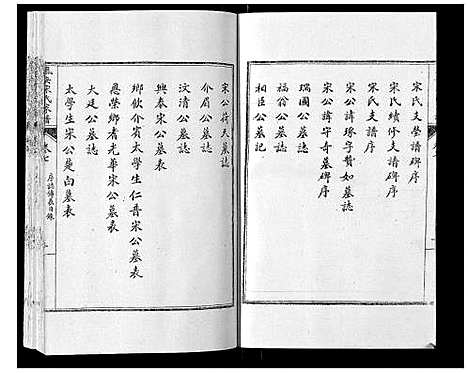 宋氏支塋譜碑序
宋氏續修支譜序
宋氏支譜序
宋公諱琢字贊如墓誌
宋公諱守奇墓碑序
瑞圖公墓誌
福翁公墓誌
相臣公墓記
宋公符天墓誌
介眉公墓誌
汶清公墓誌
興泰宋公墓誌
鄉飲介賓太學生仁普宋公墓表
恩榮鄉耆光華宋公墓表
大廷公墓誌
太學生宋公楚白墓表
宋氏宗譜
卷七
序誌傳表目錄